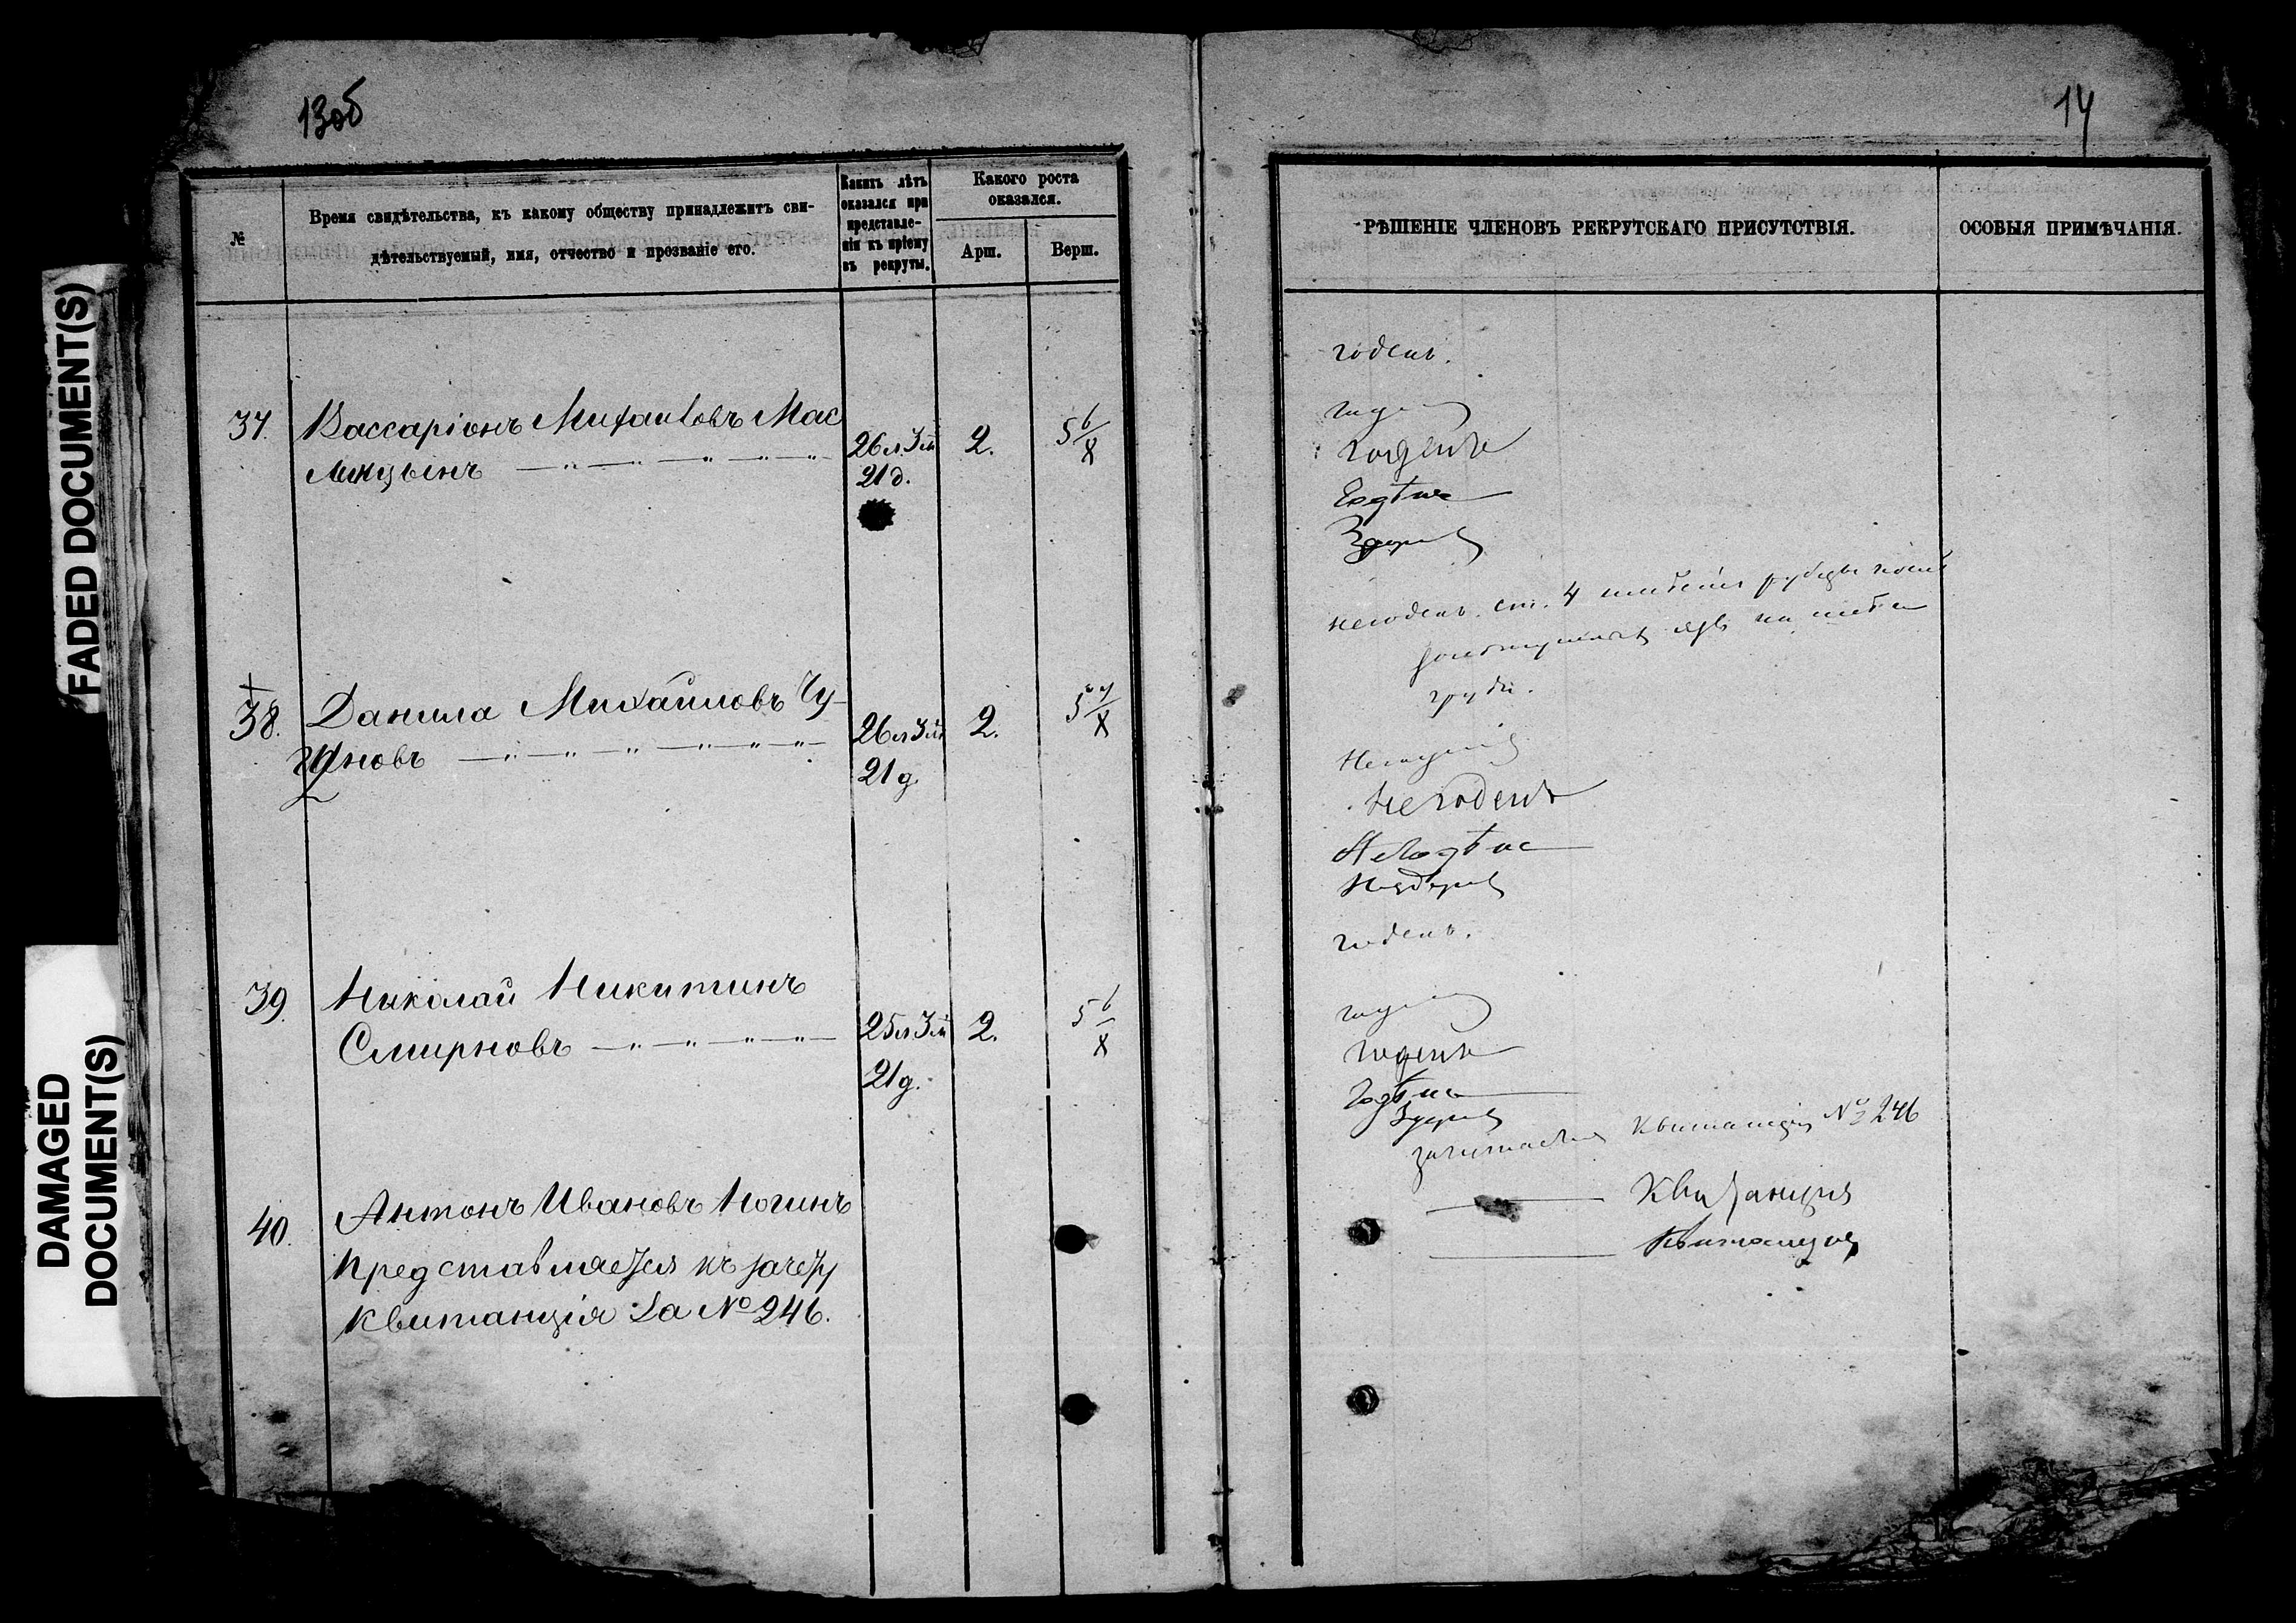 FADED DOCUMENT(S)
DAMAGED DOCUMENT(S)
13об
№
Время свидѣтельства, къ какому обществу принадлежитъ сви-
дѣтельствуемый, имя, отчество и прозваніе его.
Какихъ лѣтъ
оказался при
представле-
ніи къ пріему
въ рекруты.
Какого роста
оказался.
Арш.
Верш.
37. Вассаріонъ Михаиловъ Мас
26 л. 3 м. 2. 5 6/8
21 д.
38. Данила Михайловъ Чу-
гуновъ 26 л 3 м 2. 5
21 д.
39. Николай Никитинъ
Смирновъ 25 л 3 м 2. 5 6/8
21 д.
40. Антонъ Ивановъ Ногинъ
Представляется къ зачету
квитанція за № 246.
14
РѢШЕНІЕ ЧЛЕНОВЪ РЕКРУТСКАГО ПРИСУТСТВІЯ.
ОСОБЫЯ ПРИМѢЧАНІЯ.
годенъ.
годенъ
годенъ
Годѣнъ
Здоровъ
негоденъ. ст. 4 рубцы
на
груди.
Негоденъ
Негоденъ
Негодѣнъ
Нездоровъ
годенъ.
годенъ
годенъ
Годѣнъ
Здоровъ
зачитается квитанція № 246
Квитанция
Квитанция